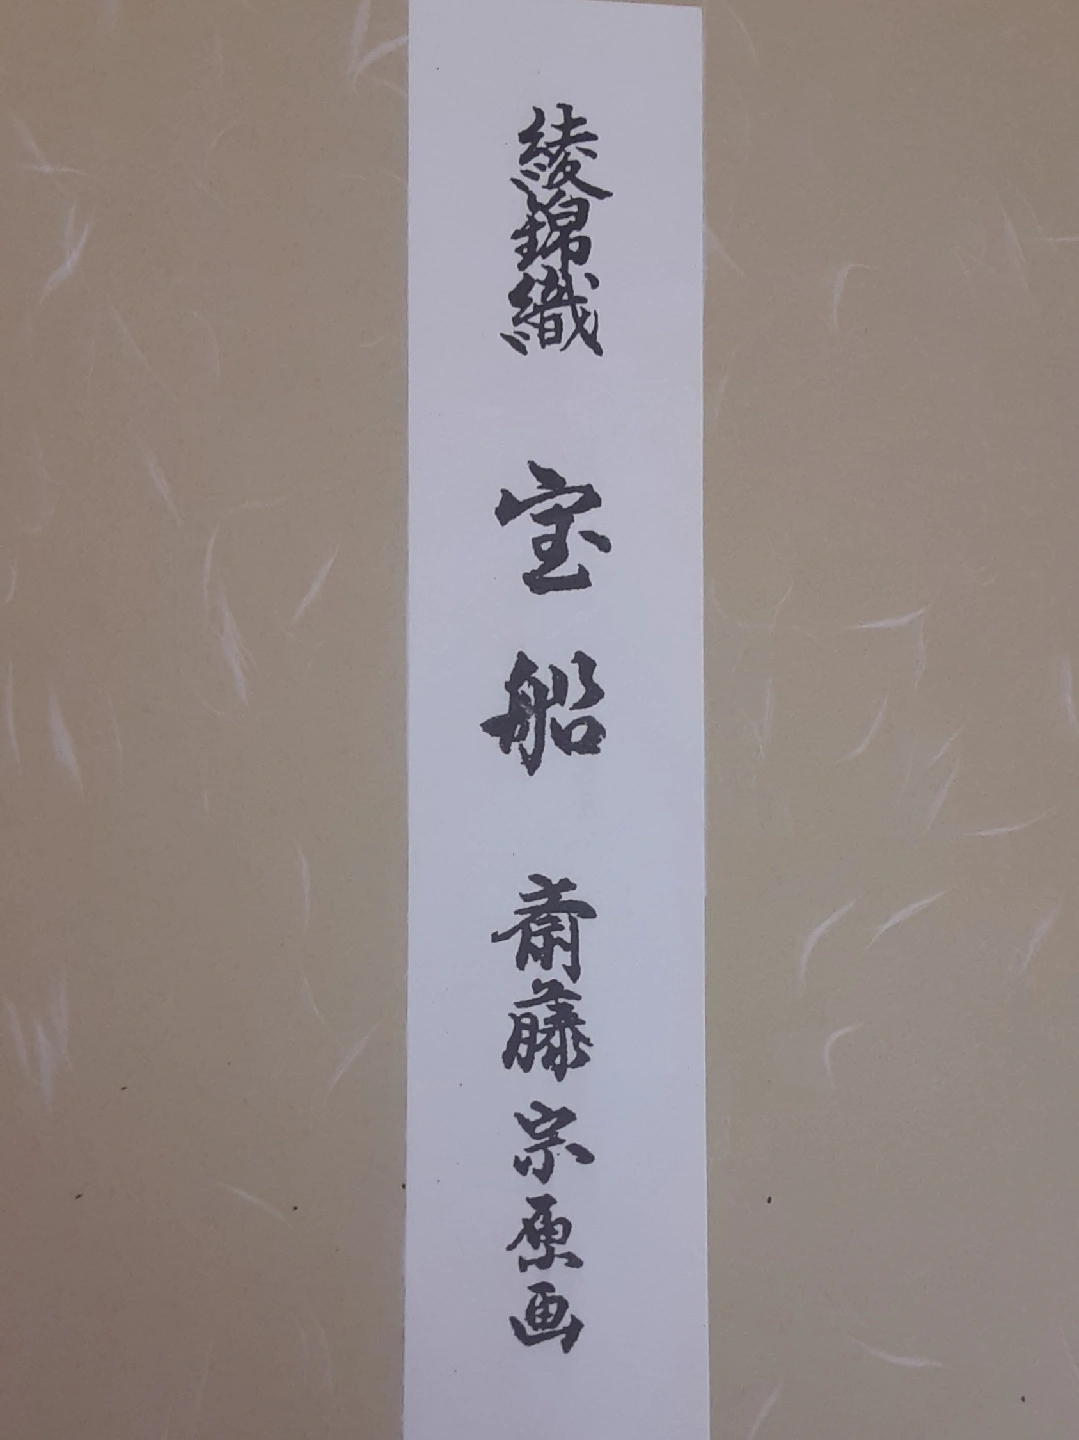 綾錦織 宝船 斎藤宗原画